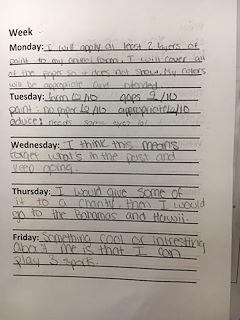 Week
Monday: I will apply at least 2 layers of
paint to my animal form. I will cover all
of the paper so it does not show. My colors
will be appropriate and intended.
Tuesday: form 10/10 gaps 9/10
paint - no paper 10/10 appropriate 10/10
advice: needs some eyes! lol
Wednesday: I think this means
forget what's in the past and
keep going.
Thursday: I would give some of
it to a charity, then I would
go to the Bahamas and Hawii.
Friday: Something cool or intresting
about me is that I can
play 3 sports.